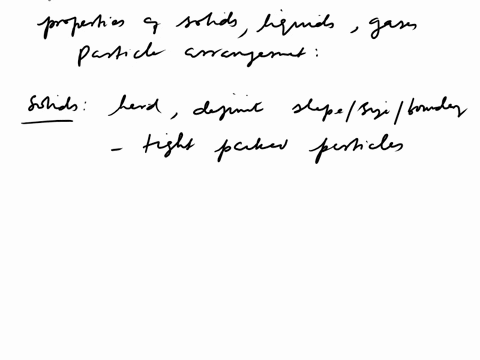 properties of solids, liquids, gases
Particle arrangement:
Solids: hard, definit shape/size/boundary
- tight packed particles